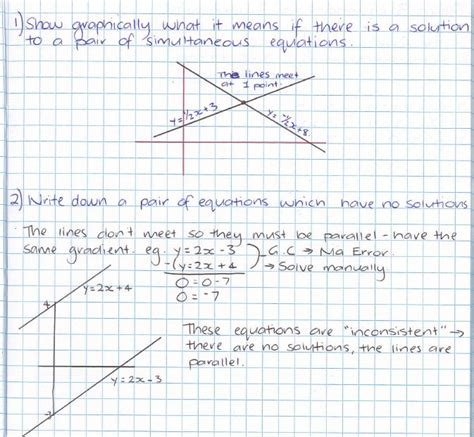 1) Show graphically what it means if there is a solution
to a pair of simultaneous equations.
The lines meet
at 1 point.
y = ½x + 3
y = -½x + 8
2) Write down a pair of equations which have no solutions
The lines don't meet so they must be parallel - have the
same gradient. eg. y = 2x - 3 } G.C → Ma Error
-(y = 2x + 4) → Solve manually
0 = 0 - 7
0 = -7
4
y = 2x + 4
These equations are "inconsistent" →
there are no solutions, the lines are
parallel.
y = 2x - 3